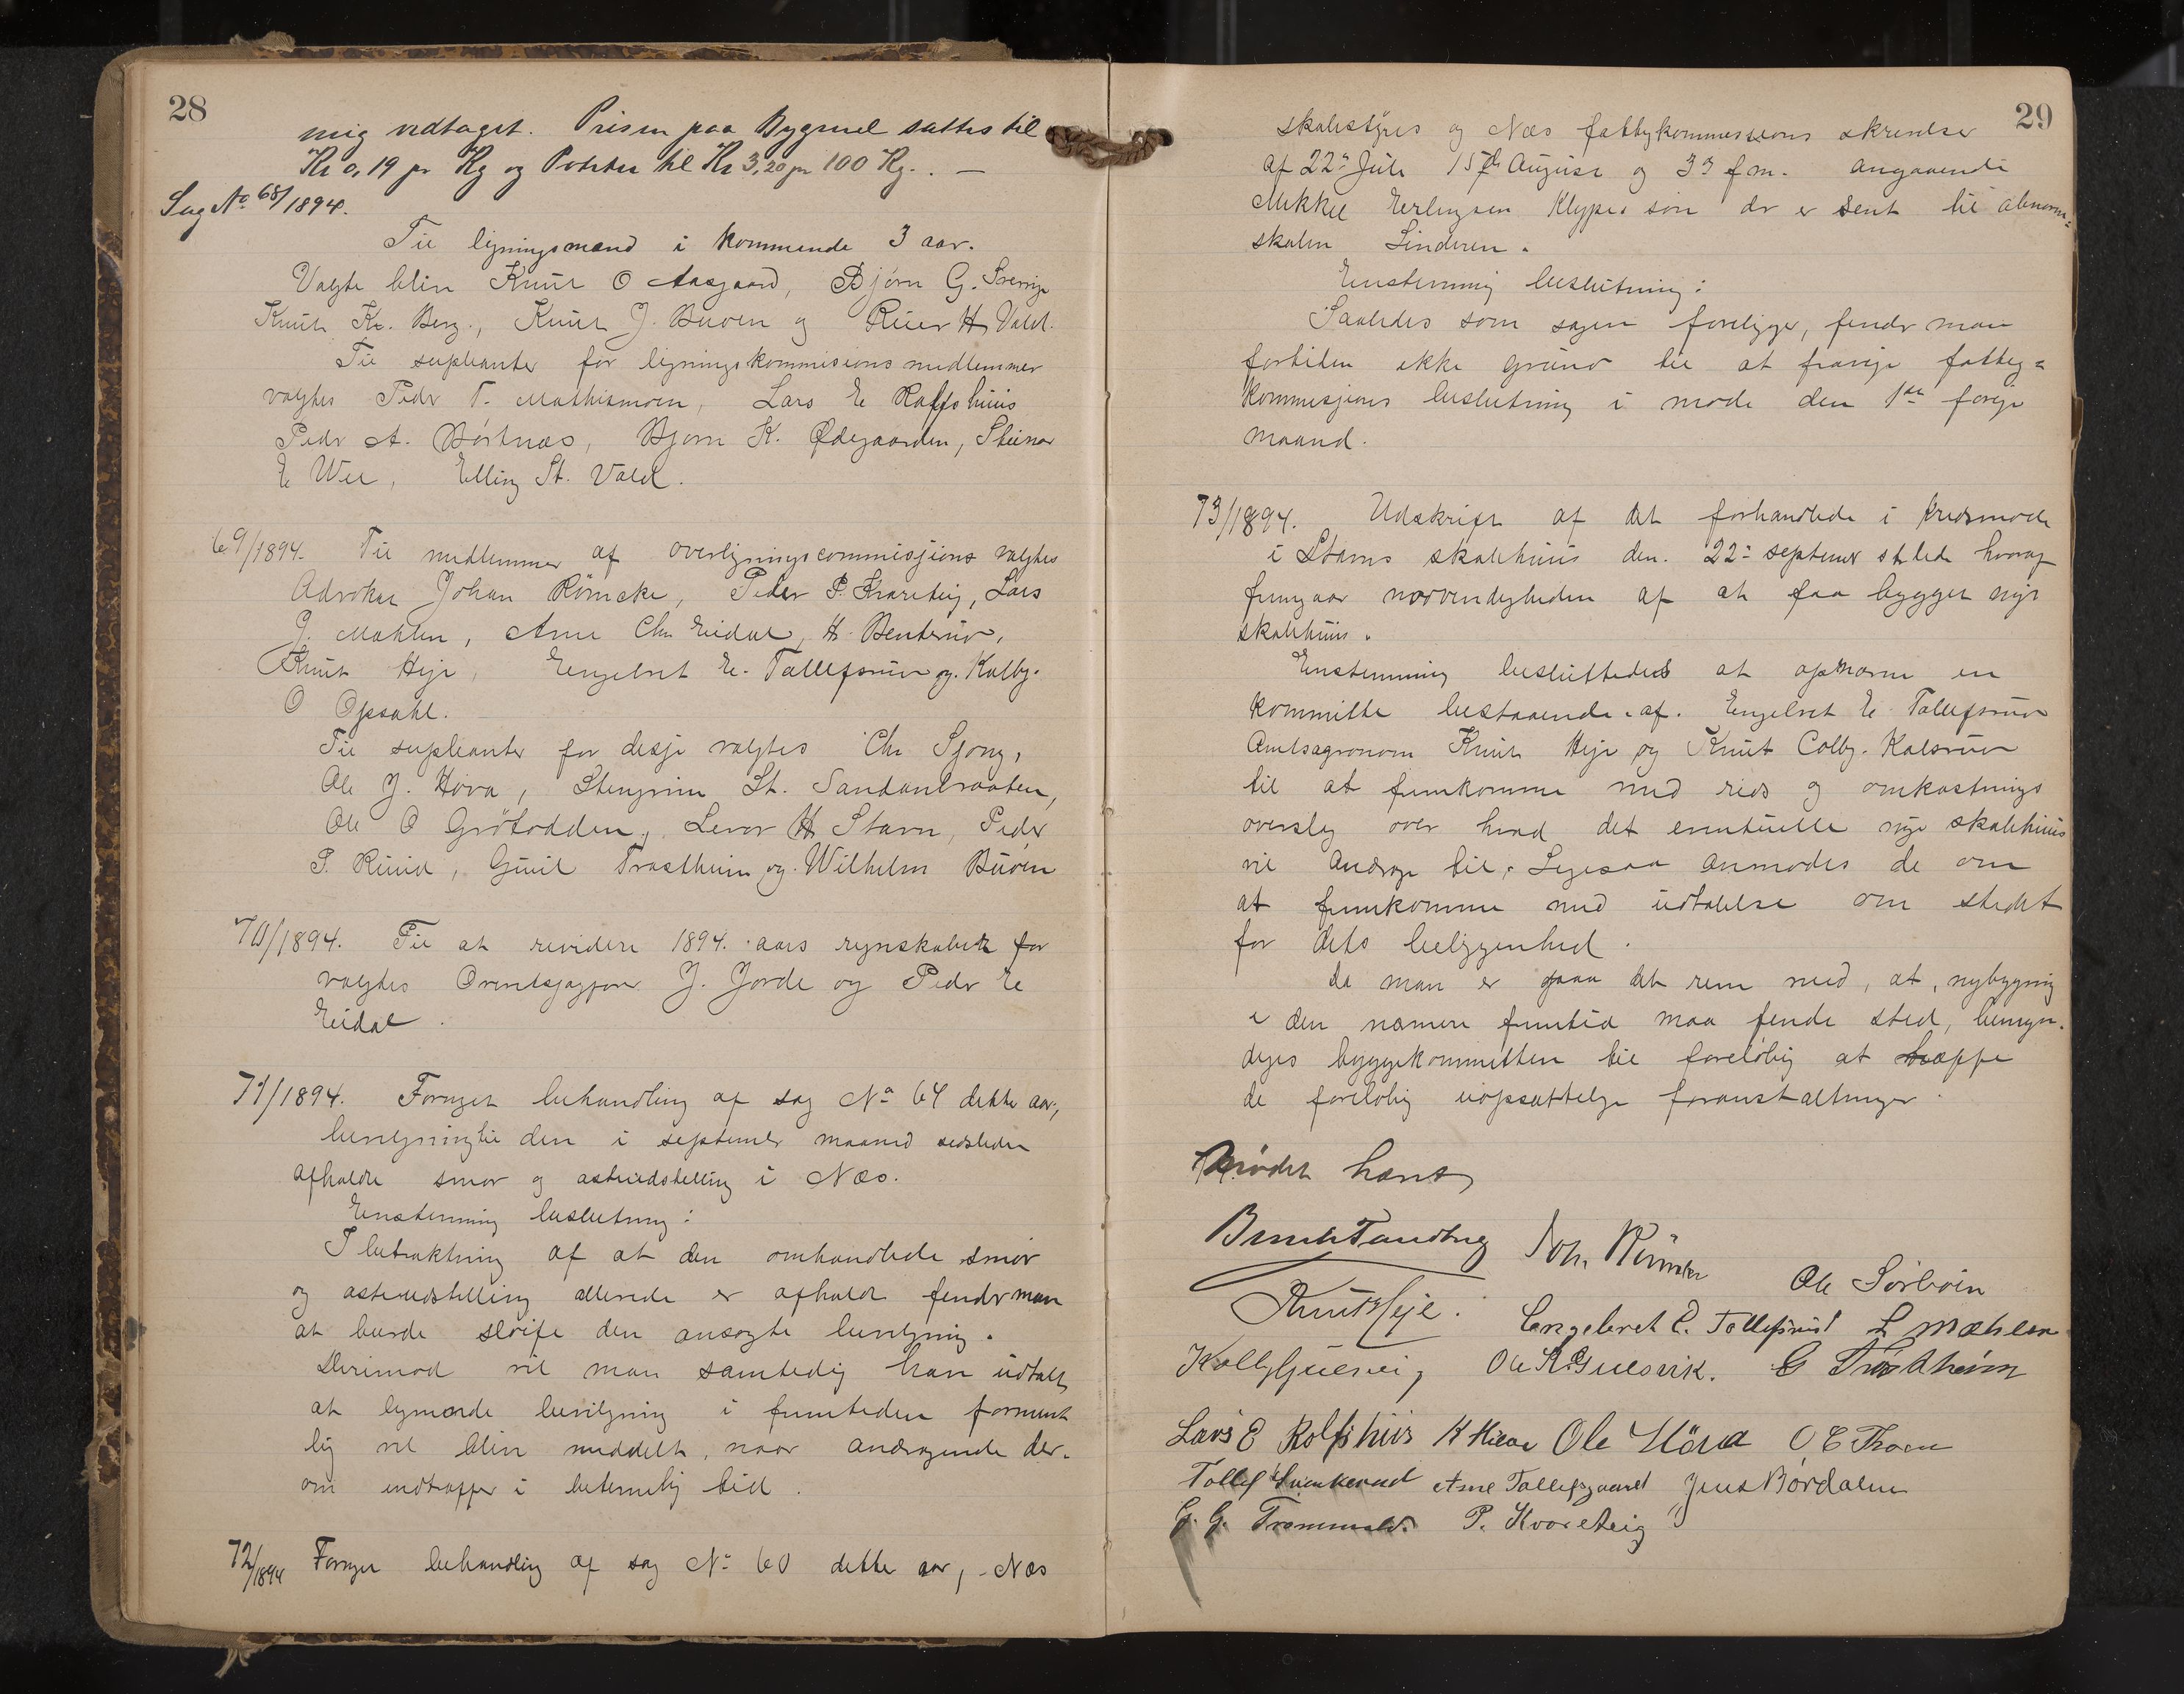 28
mig vedtaget. Prisen paa Bygmel sattes til
Kr 0,19 pr Kg og Poteter til Kr 3,20 pr 100 Kg. . —
Sag No 68/1894.
Til ligningsmænd i kommende 3 aar.
Valgte blev Knut O Aasgaard, Bjørn G.
Knut Kr. Berg., Knut J. Buøen og H Vald.
Til supleanter for ligningskommisions medlemmer
valgtes Peder T. Mathismoen, Lars E Rolfshuus
Peder A. Børtnæs, Bjørn K. Ødegaarden, Steinar
E Wel, Elling St. Vald.
69/1894. Til medlemmer af overligningscommisjions valgtes
Advokat Johan Rømcke, Peder P. Kvareteig, Lars
J. Mæhlen, Arne Chr Eidal, H. Benterud,
Knut Heje, Engebret E. Tollefsrud og Kolbj.
O Opsahl.
Til supleanter for disje valgtes Chr Sjong,
Ole J. Høva, Stengrim St. Sandanbraaten,
Ole O Grøtodden, Levor H Stavn, Peder
P. Ruud, Guul Trøstheim og Wilhelm Buøen
70/1894. Til at revidere 1894. aars regnskaber for
valgtes J. Jorde og Peder E
Eidal.
71/1894. Fornyet behandling af sag No 64 dette aar,
bevilgning til den i septemb maaned sidsleden
afholdte smør og osteudstelling i Næs.
Enstemmig beslutning:
I betraktning af at den omhandlede smør
og osteudstelling allerede er afholdt finder man
at burde sløife den ansøgte bevilgning.
Derimod vil man samtidig have udtalt
at lignende bevilgning i fremtiden forment
lig vil blive meddelt, naar andragende der-
om indtræffer i betimelig tid.
72/1894 Fornyet behandling af sag No 60 dette aar, - Næs
29
skolestyres og Næs fattigkommissions skrivelser
af 22de Juli 15de August og 3die f.m. angaaende
Mikkel Erlingsen Klypes søn der er sent til abnorm=
skolen Linderen.
Enstemmig beslutning:
Saaledes som sagen foreligger, finder man
fortiden ikke grund til at fravige fattig=
kommisjions beslutning i møde den 1ste forige
maaned.
73/1894. Udskrift af det forhandlede i kredsmøde
i Stavns skolehuus den. 22de septemb sidstled hvoraf
fremgaar nødvendigheden af at faa bygget nyt
skolehuus.
Enstemmig besluttedes at opnævne en
kommitte bestaaende af. Engebret E Tollefsrud
Amtsagronom Knut Heje og Knut Colbj. Kolsrud
til at fremkomme med rids og omkostnings
overslag over hvad det eventuelle nye skolehuus
vil andrage til, Ligesaa anmodes de om
at fremkomme med udtalelse om stedet
for dets beliggenhed.
Da man er paa det rene med, at, nybygning
i den nærmere fremtid maa finde sted, bemyn-
diges byggekommitteen til foreløbig at træffe
de foreløbig uopsættelige foranstaltninger.
Mødet hævet
Joh. Rømcke
Ole Sørbøen
Knut Heje.
Engebret E. Tollefsrud L Mæhlen
Kolbj Gulsvig Ole K Gulsvik. G Trøstheim
Lars E Rolfshuus Ole Höva O E Thoen
Tollef Arne Tollefsgaard Jens Børdalen
G. G. Trommald. P. Kvareteig